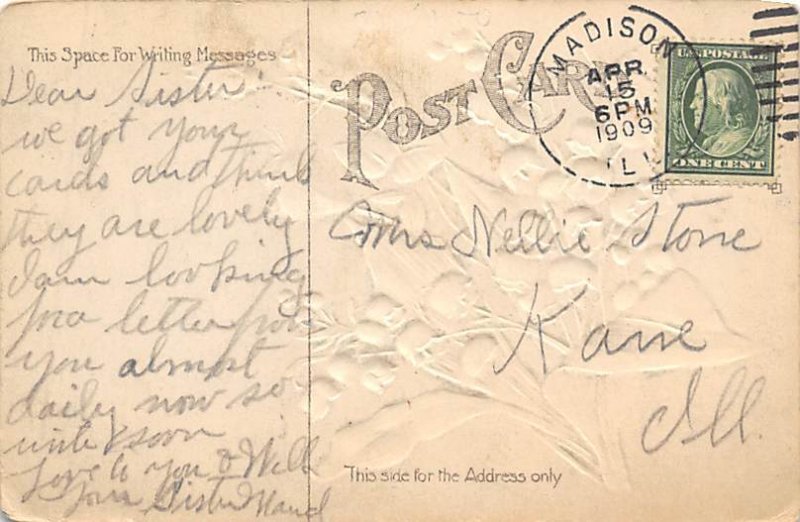 This Space For Writing Messages
Dear Sister:
we got your
cards and think
they are lovely
I am looking
for a letter from
you almost
daily now so
write soon
Love to you & Will
Your Sister Maud
POST CARD
MADISON
APR
15
6 PM
1909
ILL
U.S. POSTAGE
ONE CENT
Mrs Nellie Stone
Kane
Ill.
This side for the Address only